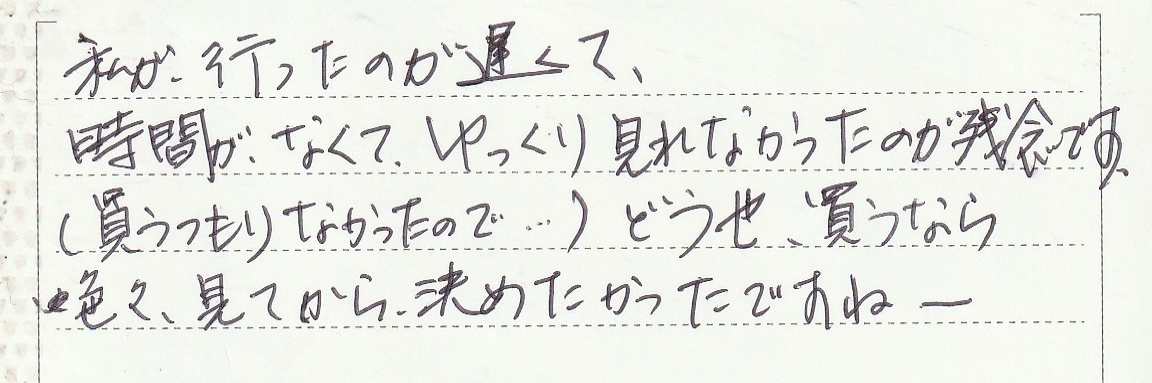 私が、行ったのが遅くて、
時間が、なくて、ゆっくり見れなかったのが残念です、
(買うつもりなかったので…)どうせ、買うなら
色々、見てから、決めたかったですねー